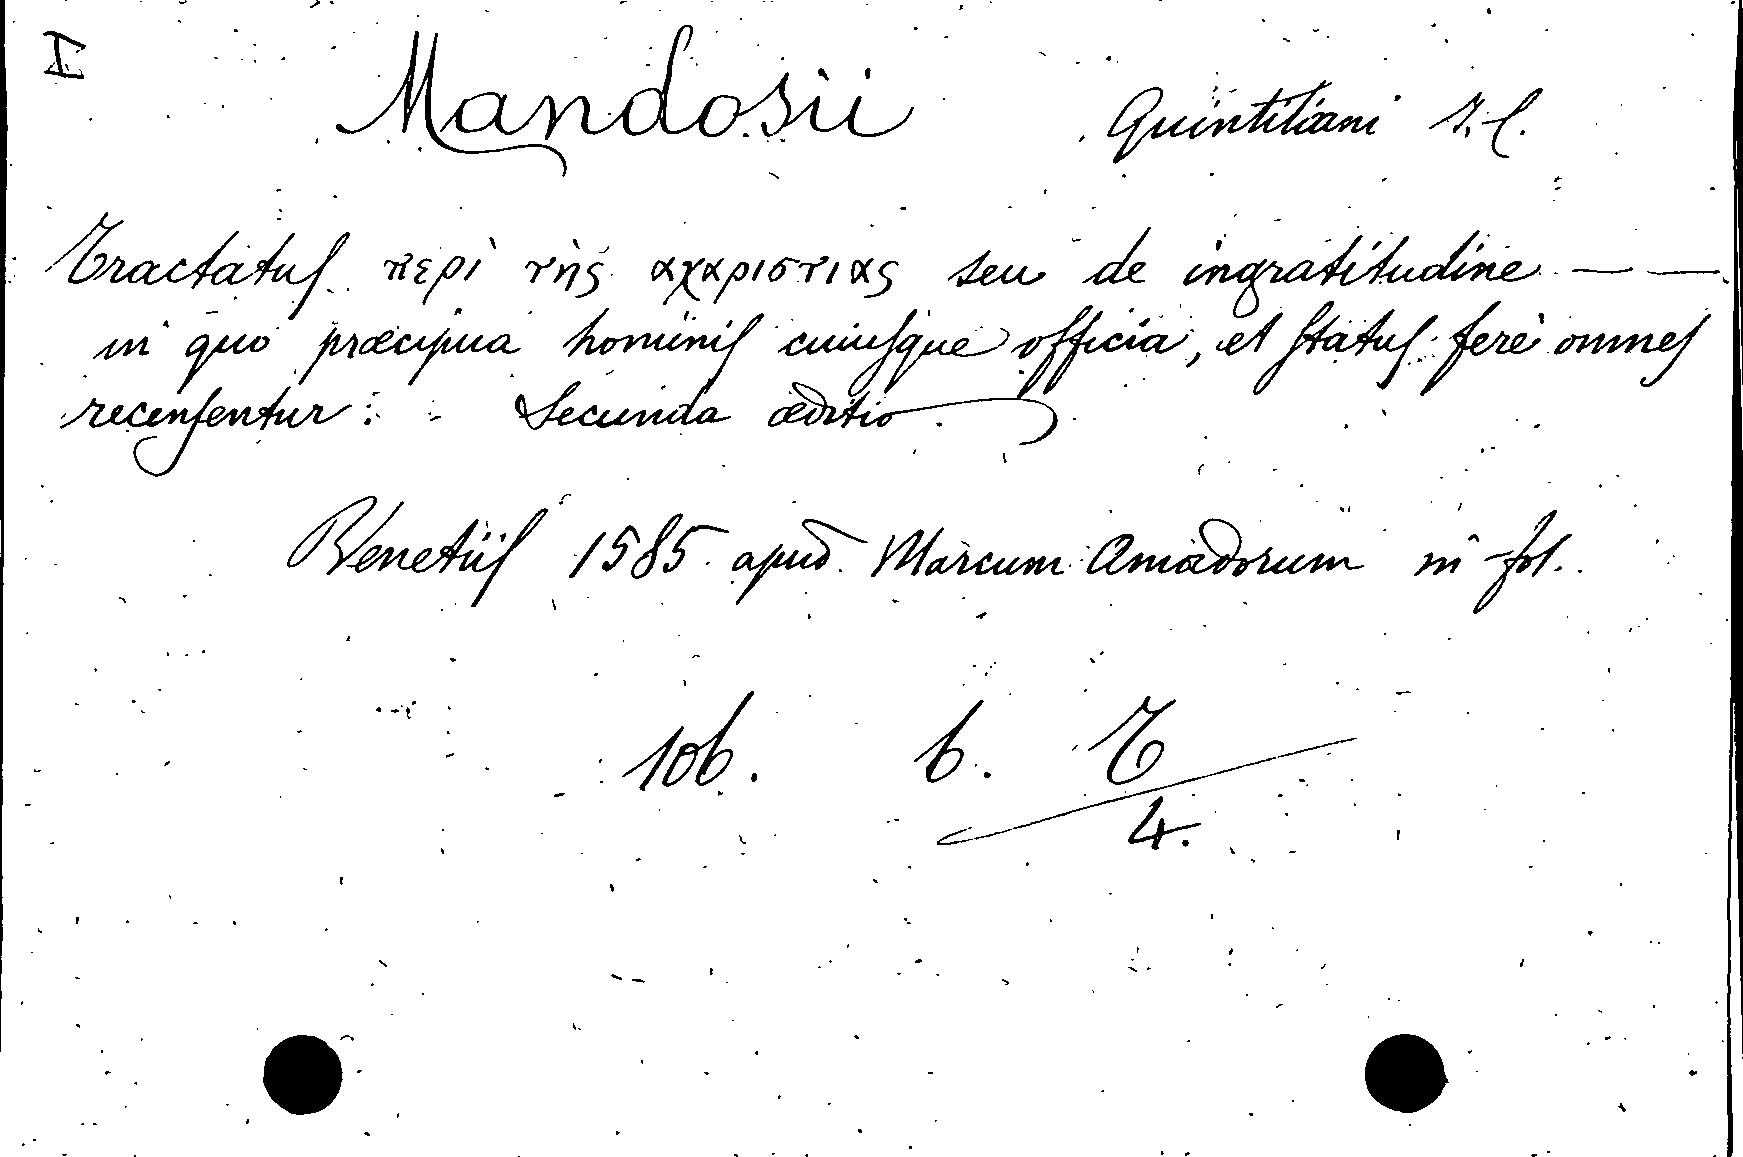 I
Mandosii Quintiliani I. C.
Tractatus περὶ τὴς αχαριστιας seu de ingratitudine — —
in quo præcipua hominis cuiusque officia, et status ferè omnes
recensentur: Secunda æditio.
Venetiis 1585 apud Marcum Amadorum in fol.
106. b. T
4.